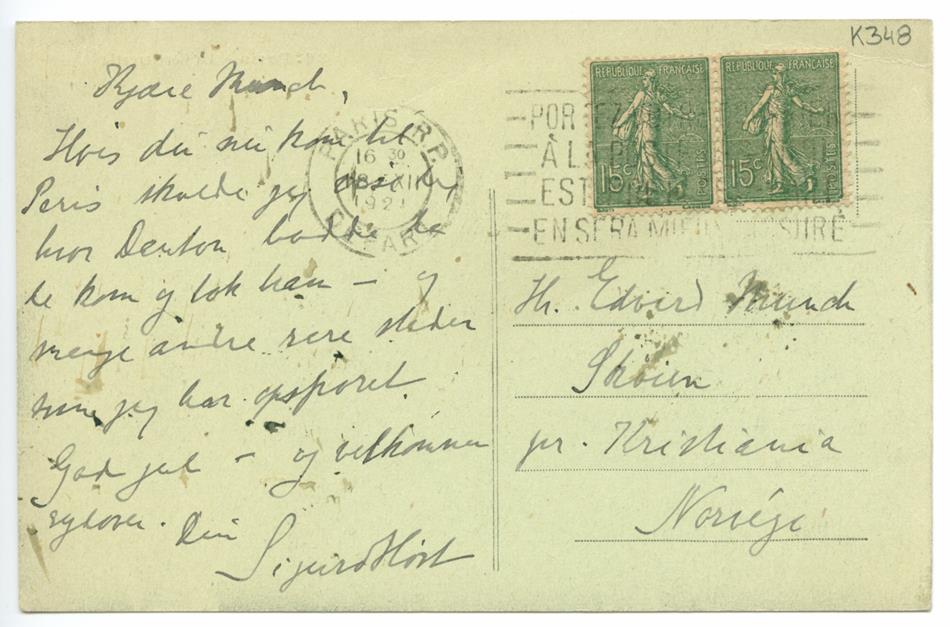 K348
Kjære Munch,
Hvis du nu kom til
Paris skulde jeg vise dig
hvor Danton bodde da
de kom og tok ham – og
mange andre rare steder
som jeg har opsporet.
God jul – og velkommen
sydover. Din
Sigurd Høst
PARIS R.P.
16 30
18 XII
1921
DEPART
À LA
EST
EN SERA MIEUX ASSURÉ
REPUBLIQUE FRANÇAISE
15c
POSTES
REPUBLIQUE FRANÇAISE
15c
POSTES
Hr. Edvard Munch
Skøien
pr. Kristiania
Norvège